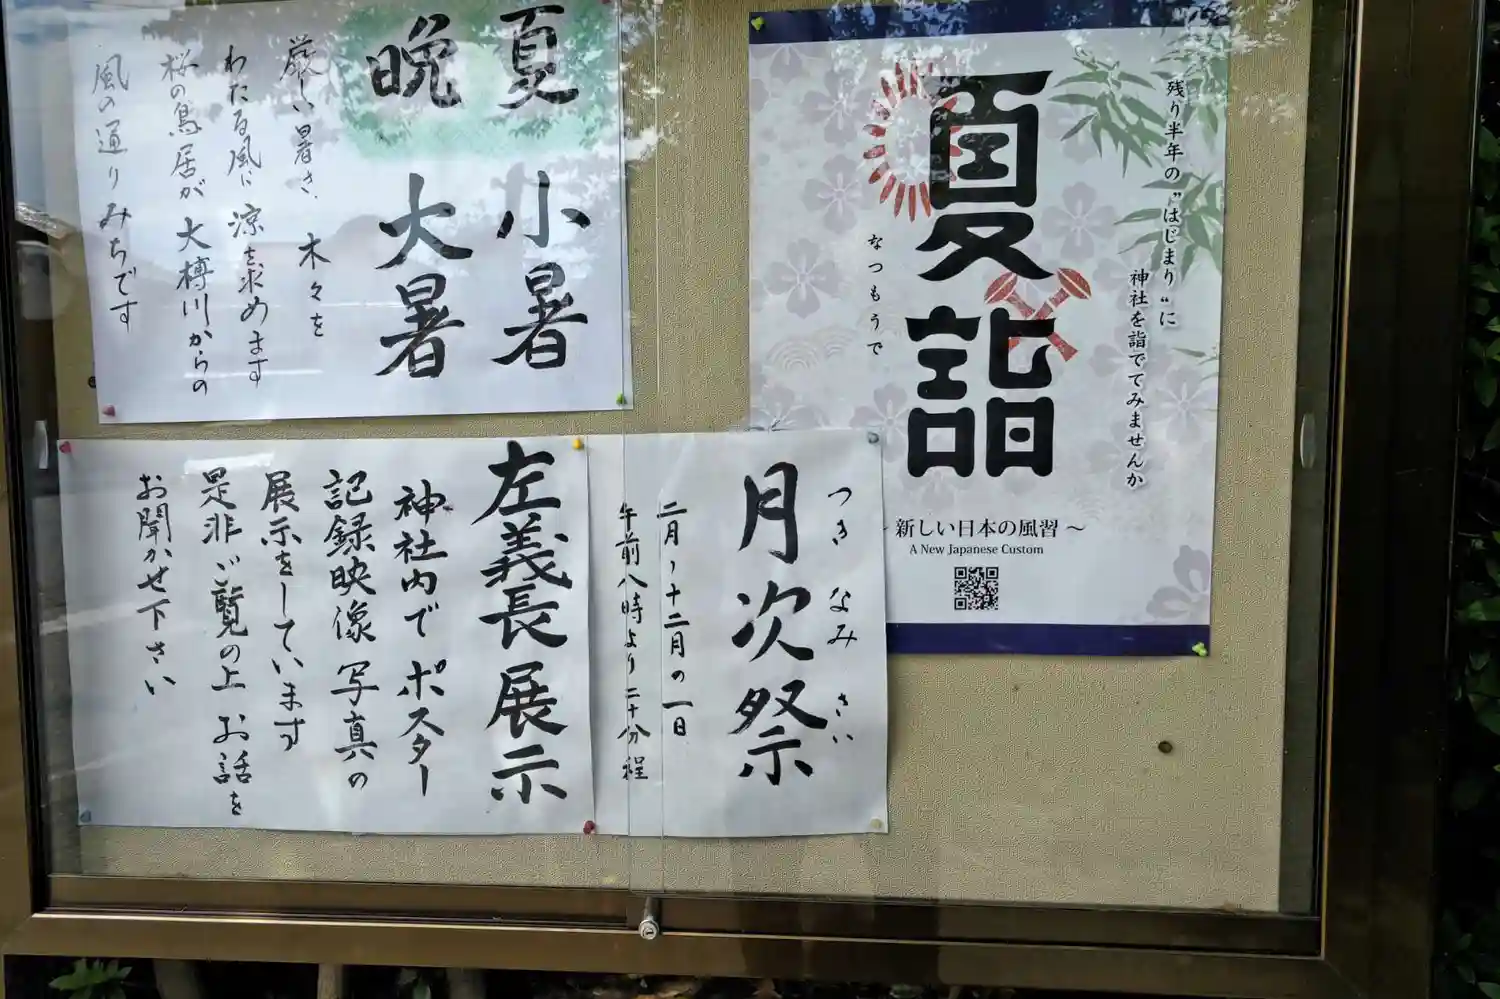 晩夏
小暑
大暑
厳しい暑さ、木々を
わたる風に涼を求めます
桜の鳥居が大樽川からの
風の通りみちです
残り半年の〝はじまり〟に
神社を詣でてみませんか
夏詣
なつもうで
~ 新しい日本の風習 ~
A New Japanese Custom
つきなみさい
月次祭
二月~十二月の一日
午前八時より二十分程
左義長展示
神社内でポスター
記録映像 写真の
展示をしています
是非ご覧の上 お話を
お聞かせ下さい